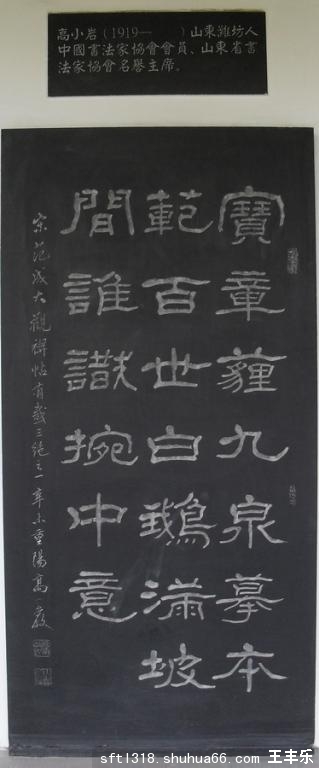 高小岩（1919— ）山東濰坊人
中國書法家協會會員、山東省書
法家協會名譽主席。
寶章薶九泉摹本
範百世白鵝滿坡
間誰識捥中意
宋范成大觀禊帖有感三絕之一辛未重陽高
sftl318.shuhua66.com 王丰乐